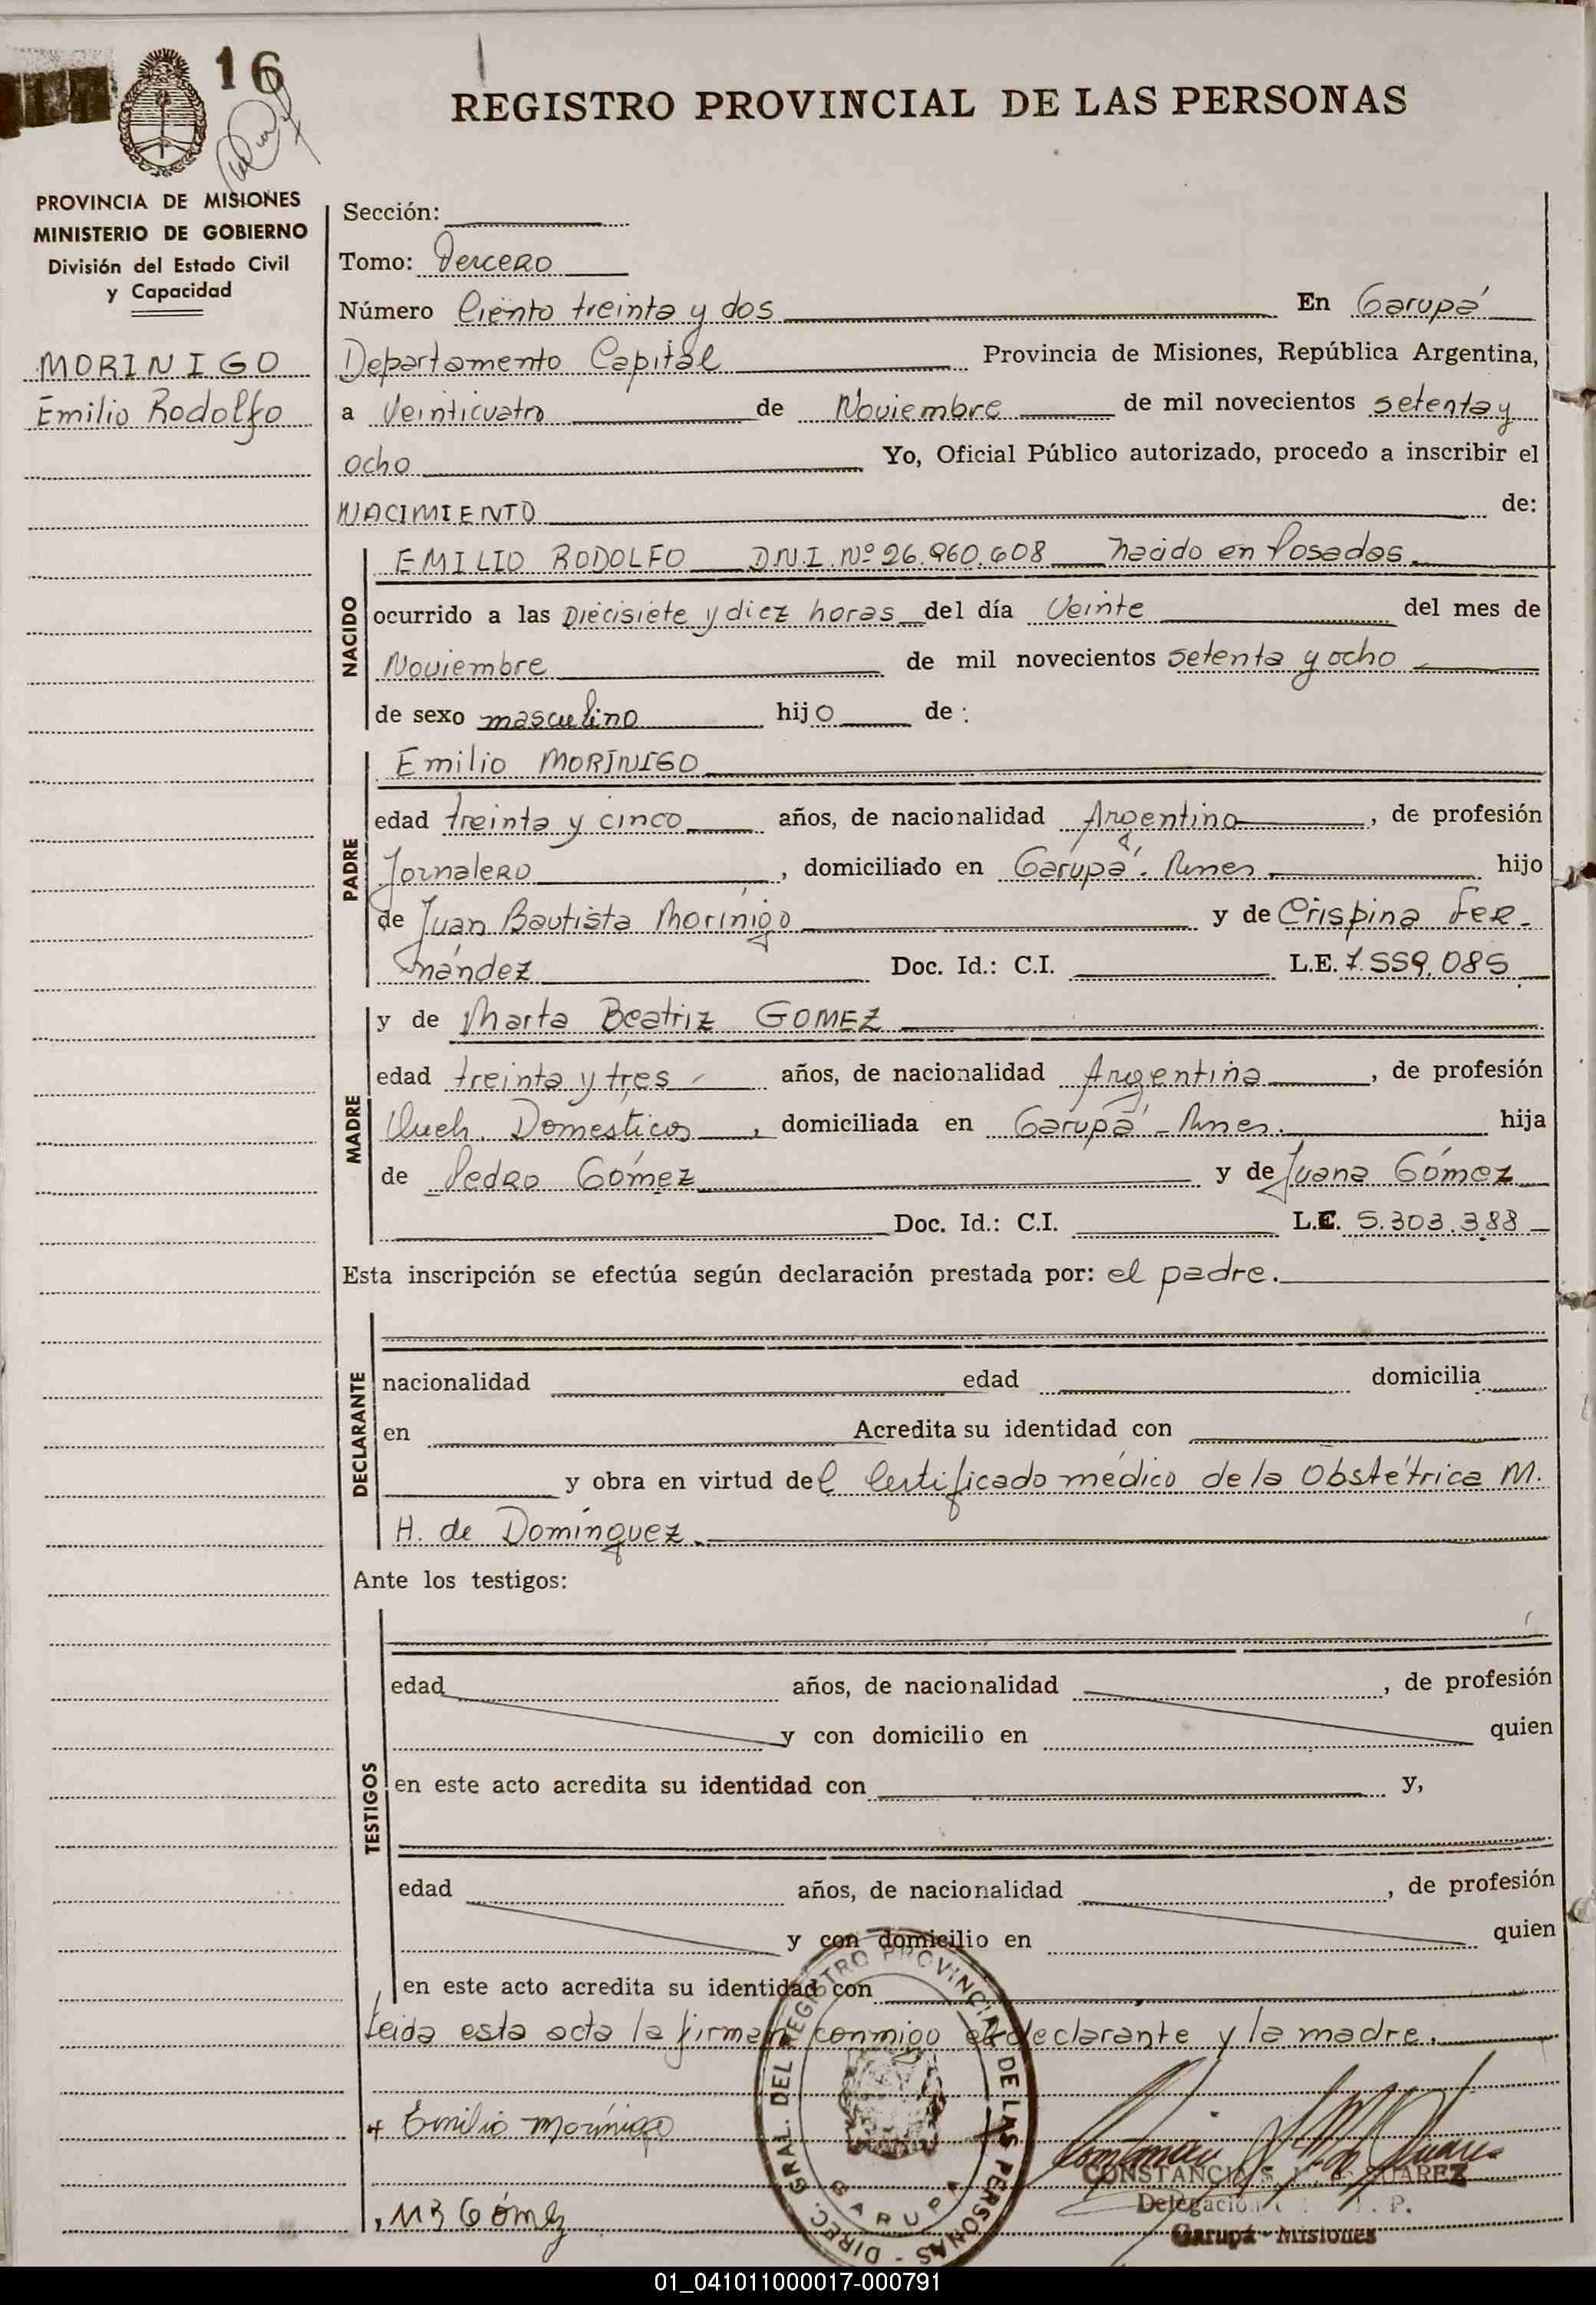 16
REGISTRO PROVINCIAL DE LAS PERSONAS
PROVINCIA DE MISIONES
MINISTERIO DE GOBIERNO
División del Estado Civil
y Capacidad
MORINIGO
Emilio Rodolfo
Sección:
Tomo: Tercero
Número Ciento treinta y dos En Garupá
Departamento Capital Provincia de Misiones, República Argentina,
a Veinticuatro de Noviembre de mil novecientos setenta y
ocho Yo, Oficial Público autorizado, procedo a inscribir el
NACIMIENTO de:
NACIDO
EMILIO RODOLFO D.N.I. Nº 26.960.608 nacido en Posadas.
ocurrido a las Diecisiete y diez horas del día Veinte del mes de
Noviembre de mil novecientos setenta y ocho
de sexo masculino hijo de:
PADRE
Emilio MORINIGO
edad treinta y cinco años, de nacionalidad Argentino, de profesión
Jornalero, domiciliado en Garupá. Mnes hijo
de Juan Bautista Morínigo y de Crispina Fer-
nández Doc. Id.: C.I. L.E. 7.559.085
MADRE
y de Marta Beatriz GOMEZ
edad treinta y tres años, de nacionalidad Argentina, de profesión
Queh. Domesticos, domiciliada en Garupá - Mnes. hija
de Pedro Gómez y de Juana Gómez
Doc. Id.: C.I. L.C. 5.303.388
Esta inscripción se efectúa según declaración prestada por: el padre.
DECLARANTE
nacionalidad edad domicilia
en Acredita su identidad con
y obra en virtud del Certificado médico de la Obstétrica M.
H. de Domínguez.
Ante los testigos:
TESTIGOS
edad años, de nacionalidad , de profesión
y con domicilio en quien
en este acto acredita su identidad con y,
edad años, de nacionalidad , de profesión
y con domicilio en quien
en este acto acredita su identidad con
Leida esta acta la firman conmigo el declarante y la madre.
Emilio Morínigo
MB Gómez
DIREC. GRAL. DEL REGISTRO PROVINCIAL DE LAS PERSONAS
GARUPA
CONSTANCIA S. SUAREZ
Delegación P.
Garupá - Misiones
01_041011000017-000791